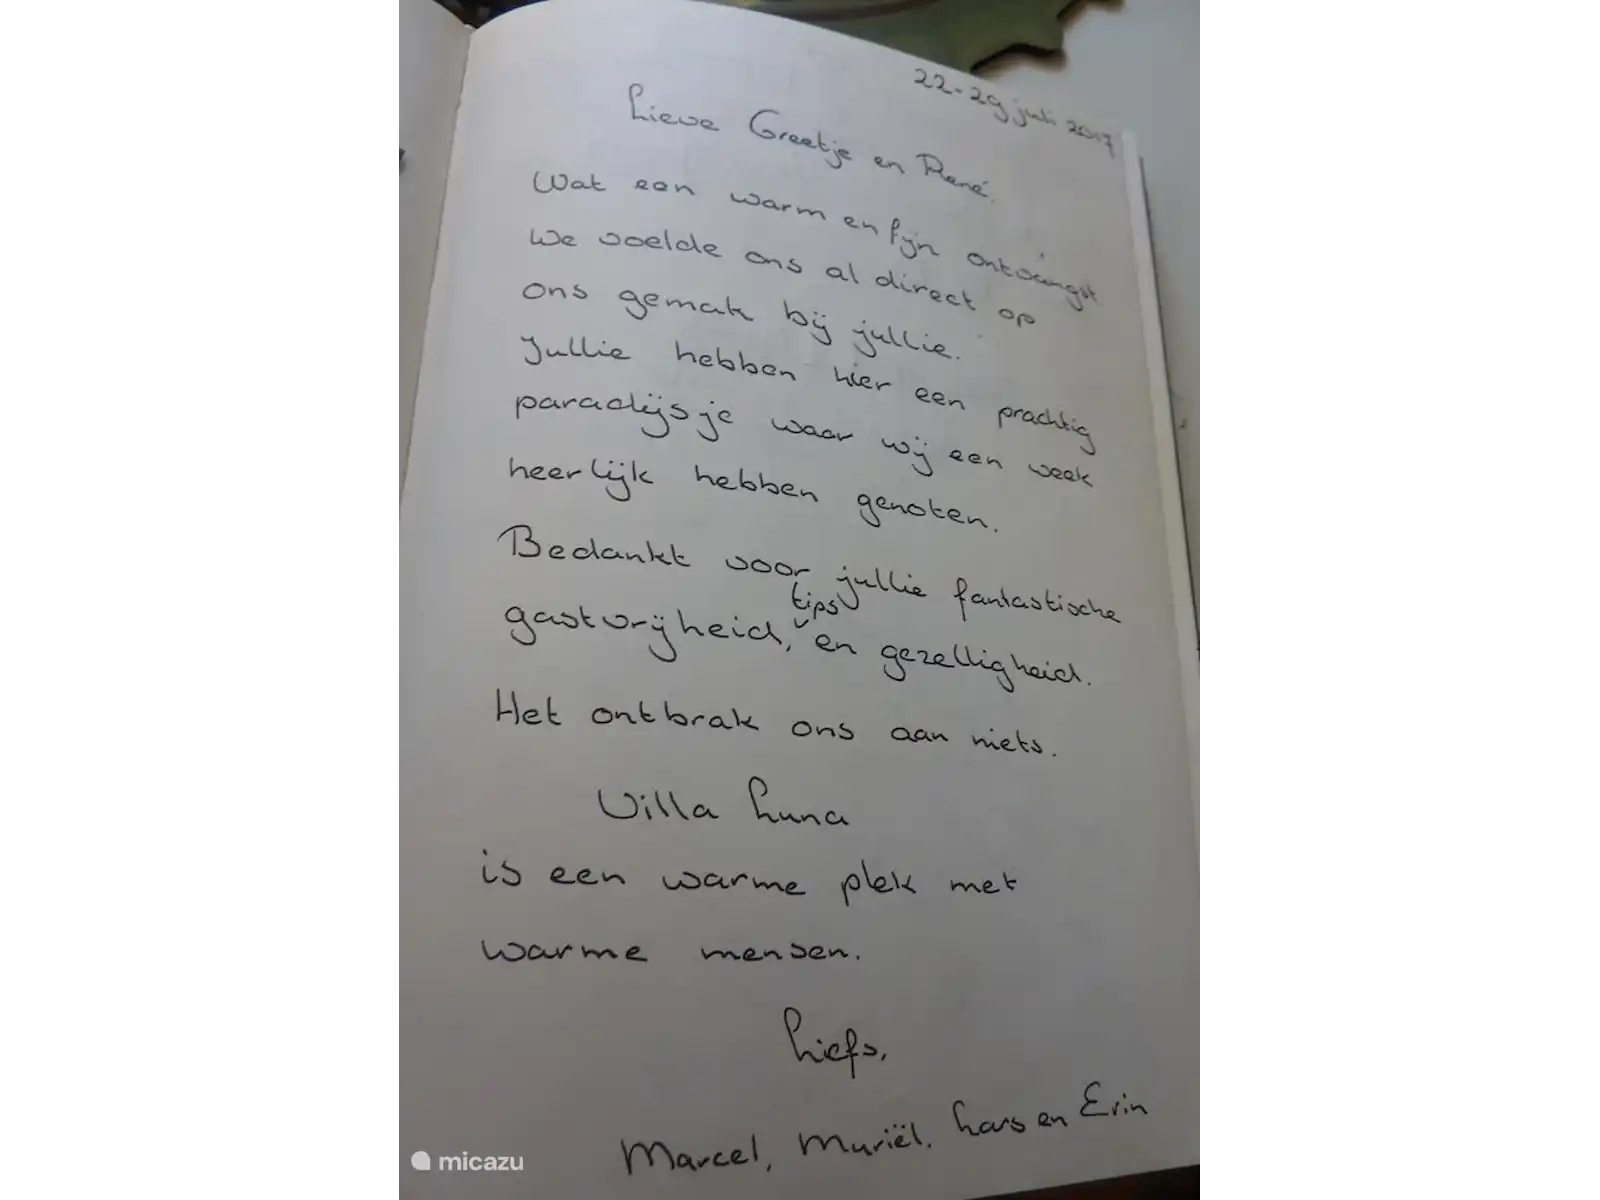 22-29 juli 2017
Lieve Greetje en René.
Wat een warm en fijn ontvangst
We voelde ons al direct op
ons gemak bij jullie.
Jullie hebben hier een prachtig
paradijsje waar wij een week
heerlijk hebben genoten.
Bedankt voor jullie fantastische
tips
gastvrijheid, en gezelligheid.
Het ontbrak ons aan niets.
Villa Luna
is een warme plek met
warme mensen.
Liefs,
Marcel, Muriël, Lars en Erin
micazu